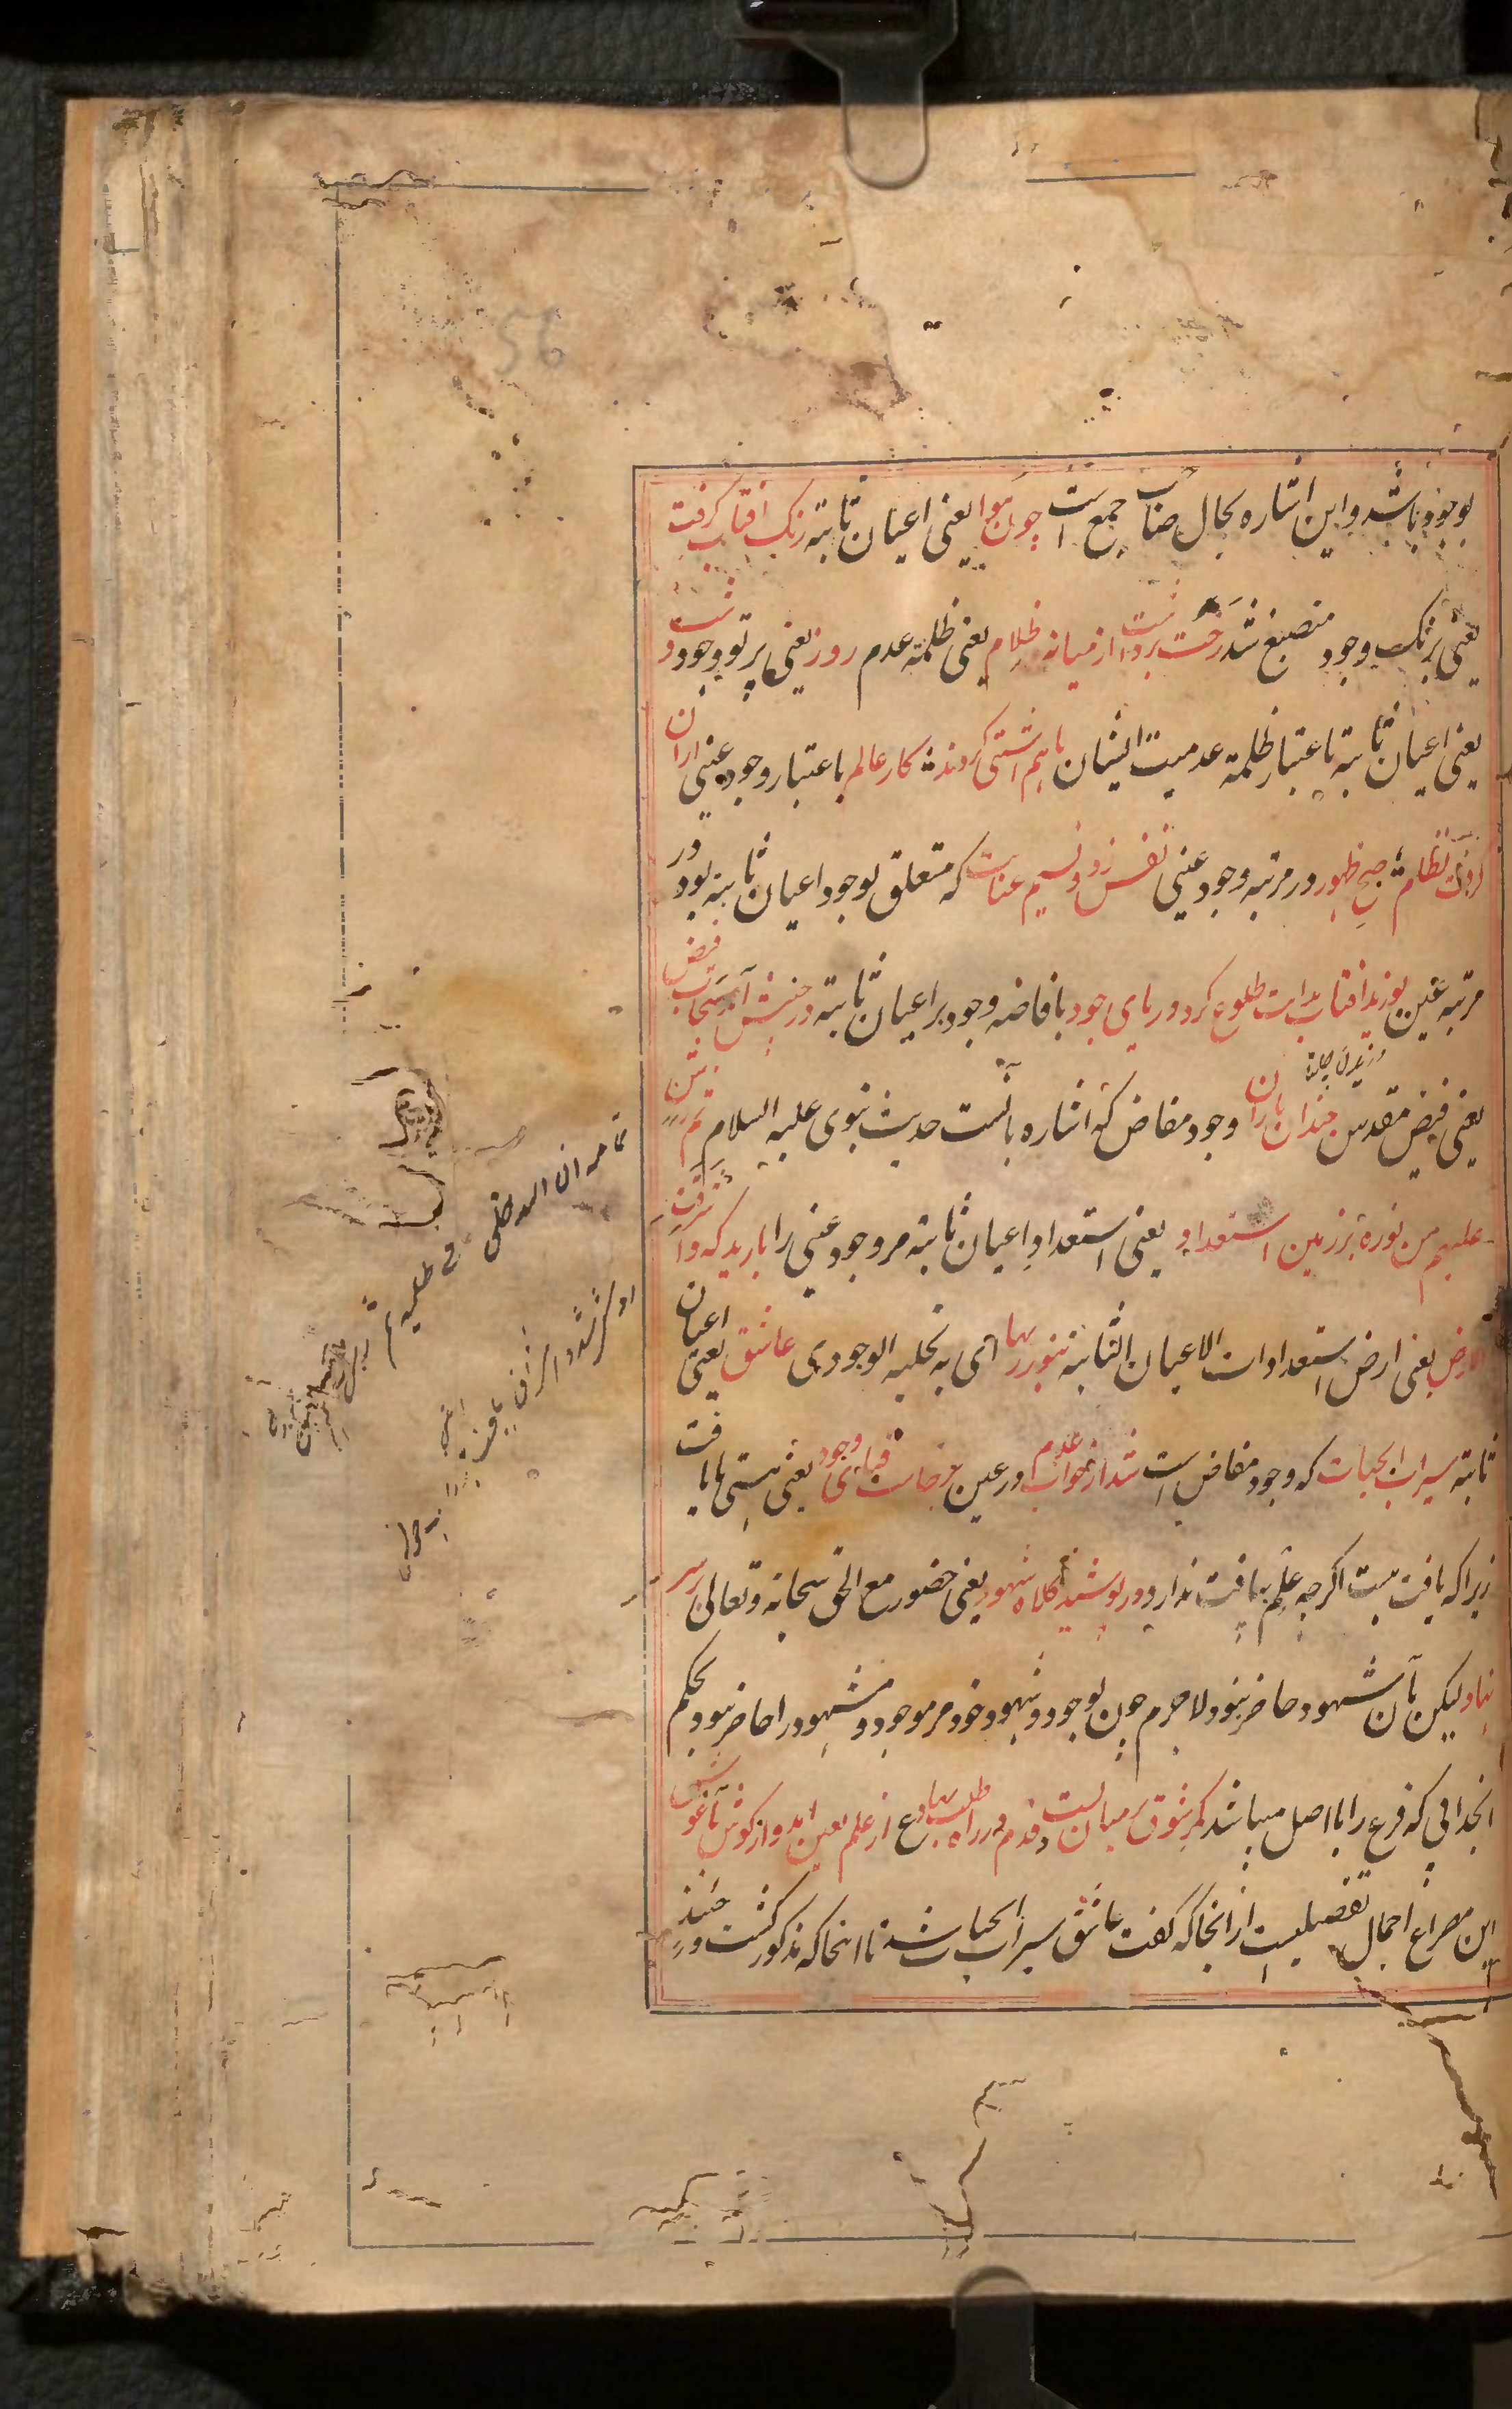 بوجود باشد و این اشاره بحال صاحب جمع است چون هوا یعنی اعیان ثابته رنک افتاب کرفت
یعنی برنک وجود منصبغ شد رخت برداشت از میانه ظلام یعنی ظلمة عدم روز یعنی پرتو وجود و شب
یعنی اعیان ثابته باعتبار ظلمة عدمیت ایشان باهم اشتی کردند کار عالم باعتبار وجود عینی ازان
کرفت نظام صبح ظهور در مرتبه وجود عینی نفس زد و نسیم عنایت که متعلق بوجود اعیان ثابته بود در
مرتبه عین بوزید افتاب هدایت طلوع کرد دریای جود بافاضه وجود بر اعیان ثابته در جنبش آمد سحاب فیض
یعنی فیض مقدس چندان باران وجود مفاض که اشاره بآنست حدیث نبوی علیه السلام ثم رش
علیهم من نوره بر زمین استعداد یعنی استعداد اعیان ثابته مر وجود عینی را بارید که و اشرقت
الارض یعنی ارض استعدادات الاعیان الثابته بنور ربها ای به تجلیه الوجودی عاشق یعنی اعیان
ثابته سیراب الحیات که وجود مفاض است شد از خواب عدم در عین برخاست قبای وجود یعنی هستی را یافت
زیرا که یافت هست اکرچه علم بیافت ندارد در پوشید کلاه شهود یعنی حضور مع الحق سبحانه و تعالی بر سر
نهاد لیکن بآن شهود حاضر نبود لاجرم چون بوجود و شهود خود مر موجود و مشهود را حاضر نبود بحکم
انجذابی که فرع را با اصل میباشد کمر شوق بر میان بست و قدم در راه طلب نهاد ع از علم بعین امد و از کوش باغوش
این مصراع اجمال تفصیلیست از انجا که کفت عاشق سیراب الحیات شد تا انجا که مذکور کشت و در چند
ثم رش